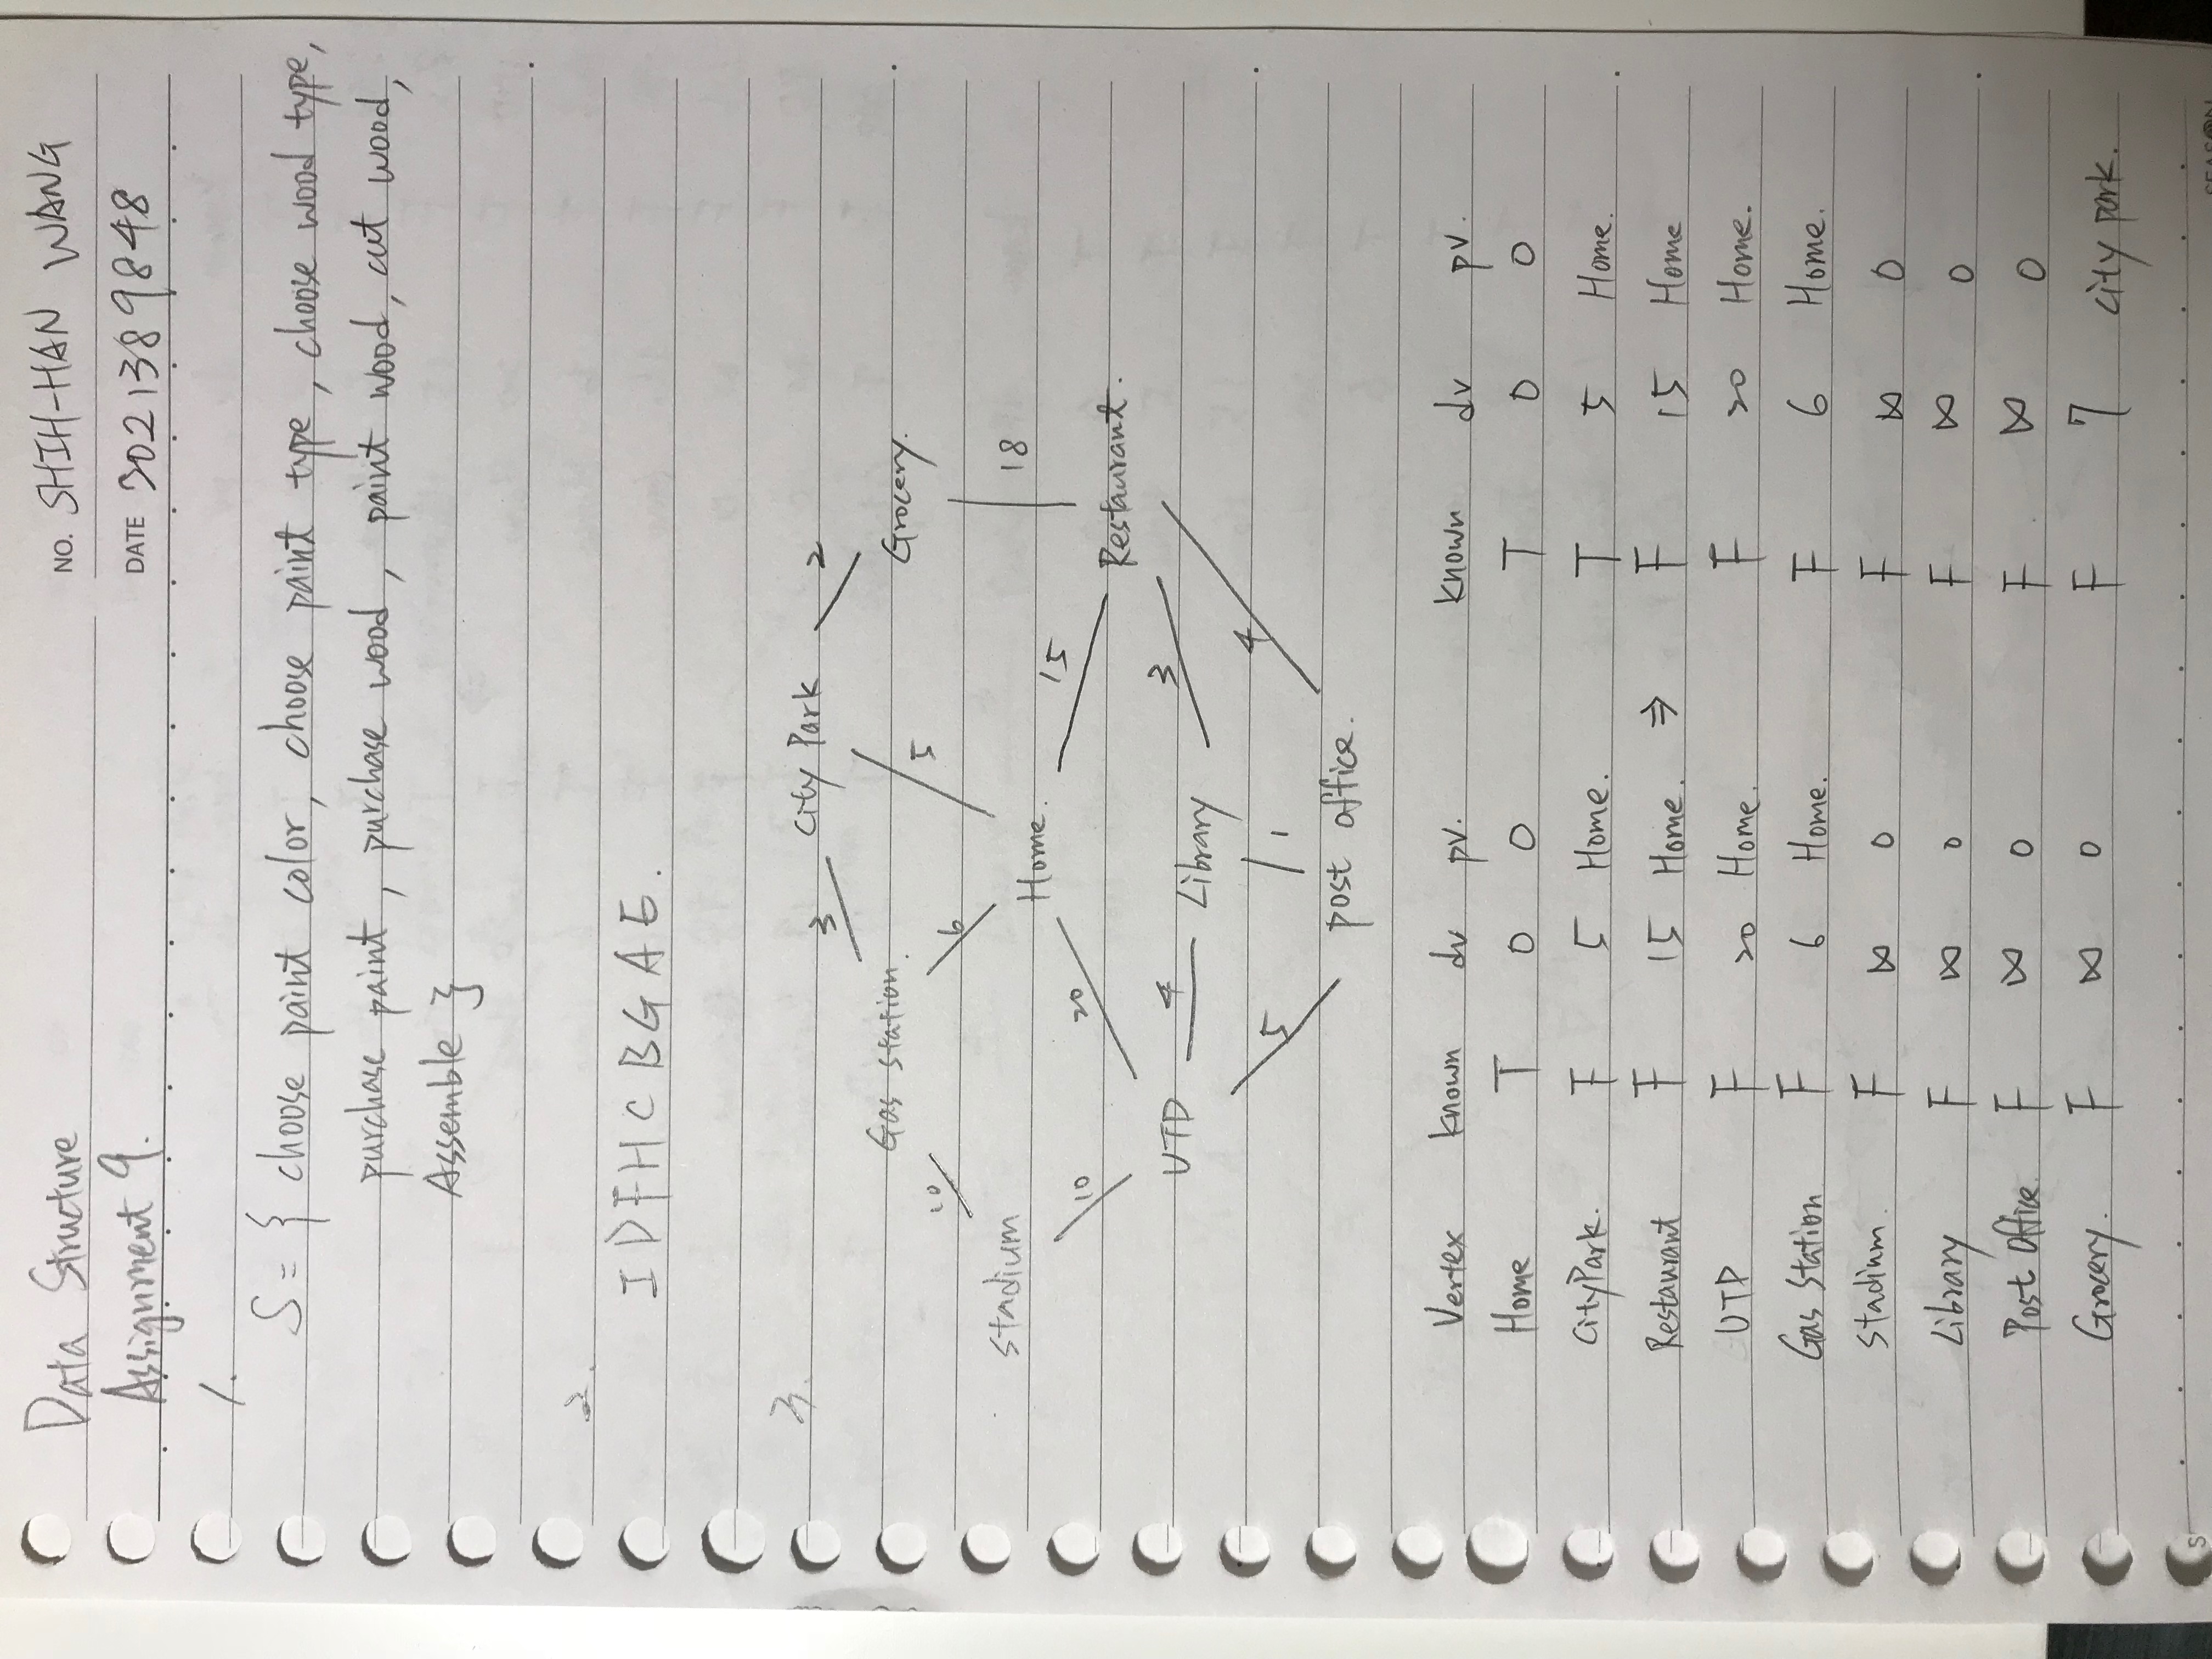 Data Structure
NO. SHIH-HAN WANG
Assignment 9.
DATE 3021389848
1.
S = { choose paint color, choose paint type, choose wood type,
purchase paint, purchase wood, paint wood, cut wood,
Assemble }
2.
I D F H C B G A E.
3.
3 City Park 2
Gas station. Grocery.
10 6 5
stadium 18
Home.
10 20 15
Restaurant.
UTD 4 Library 3
5 1 4
post office.
Vertex known dv pv. known dv pv.
Home T 0 0 T 0 0
CityPark. F 5 Home. T 5 Home.
Restaurant F 15 Home. ⇒ F 15 Home
UTD F 20 Home. F 20 Home.
Gas Station F 6 Home. F 6 Home.
stadium. F ∞ 0 F ∞ 0
Library F ∞ 0 F ∞ 0
Post Office F ∞ 0 F ∞ 0
Grocery. F ∞ 0 F 7 city park.